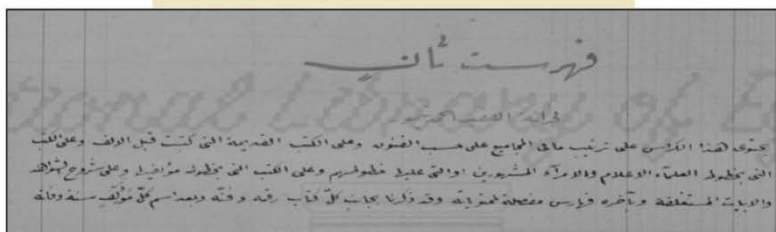 فهرست ثان
لخزانة الفقير احمد تيمور
tional Library of E
يحتوى هذا الكراس على ترتيب ما فى المجاميع على حسب الفنون وعلى الكتب القديمة التى كتبت قبل الالف وعلى الكتب
التى بخطوط العلماء الاعلام والامراء المشهورين او التى عليها خطوطهم وعلى الكتب التى بخطوط مؤلفيها وعلى شروح الشواهد
والابيات المستغلقة وبآخره فهارس مفصلة لمحتوياته وقد ذكرنا بجانب كل كتاب رقمه وفنه وبعد اسم كل مؤلف سنة وفاته